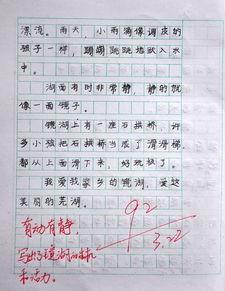 漂流。雨天，小雨滴像调皮的
孩子一样，蹦蹦跳跳地跃入水
中。
湖面有时非常静，静的就
像一面镜子。
镜湖上有一座石拱桥，许
多小孩把石拱桥当成了滑滑梯，
都从上面滑下来，好玩极了。
我爱我家乡的镜湖，爱这
美丽的芜湖。
92
有动有静，
3.22
写出了镜湖的生机
和活力。